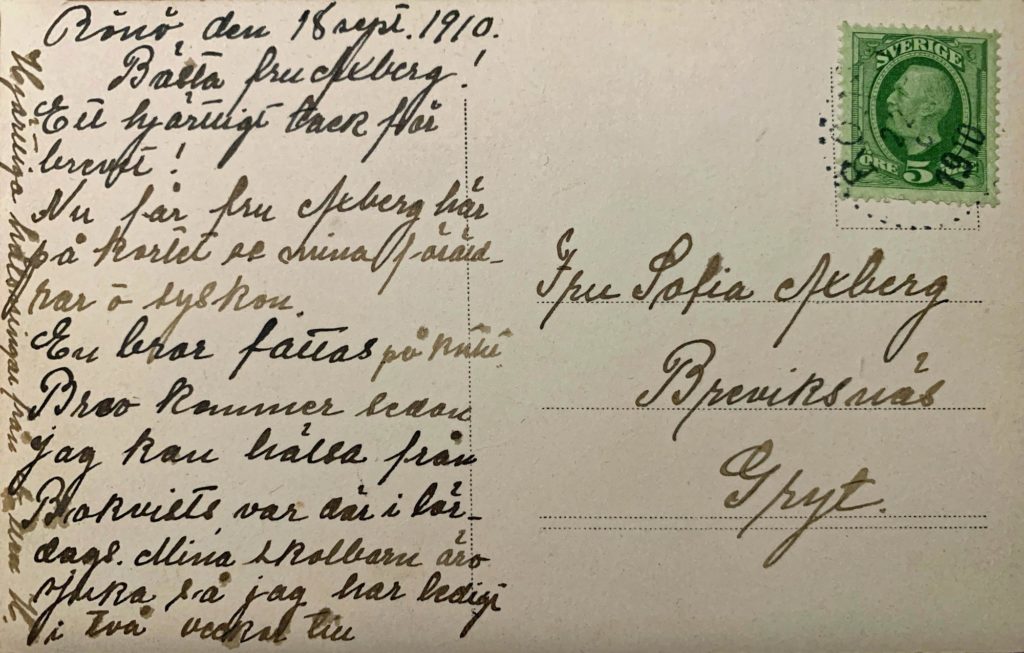 Rönö, den 18 sept. 1910.
Bästa fru Axberg!
Ett hjärtligt tack för
brevet!
Nu får fru Axberg här
på kortet se mina föräld-
rar ö syskon.
En bror fattas på kortet
Brev kommer sedan
Jag kan hälsa från
Brokvists var där i lör-
dags. Mina skolbarn äro
sjuka så jag har ledigt
i två veckor till
Hjärtliga hälsningar från
SVERIGE
ÖRE 5
1910
Fru Sofia Axberg
Breviksnäs
Gryt.